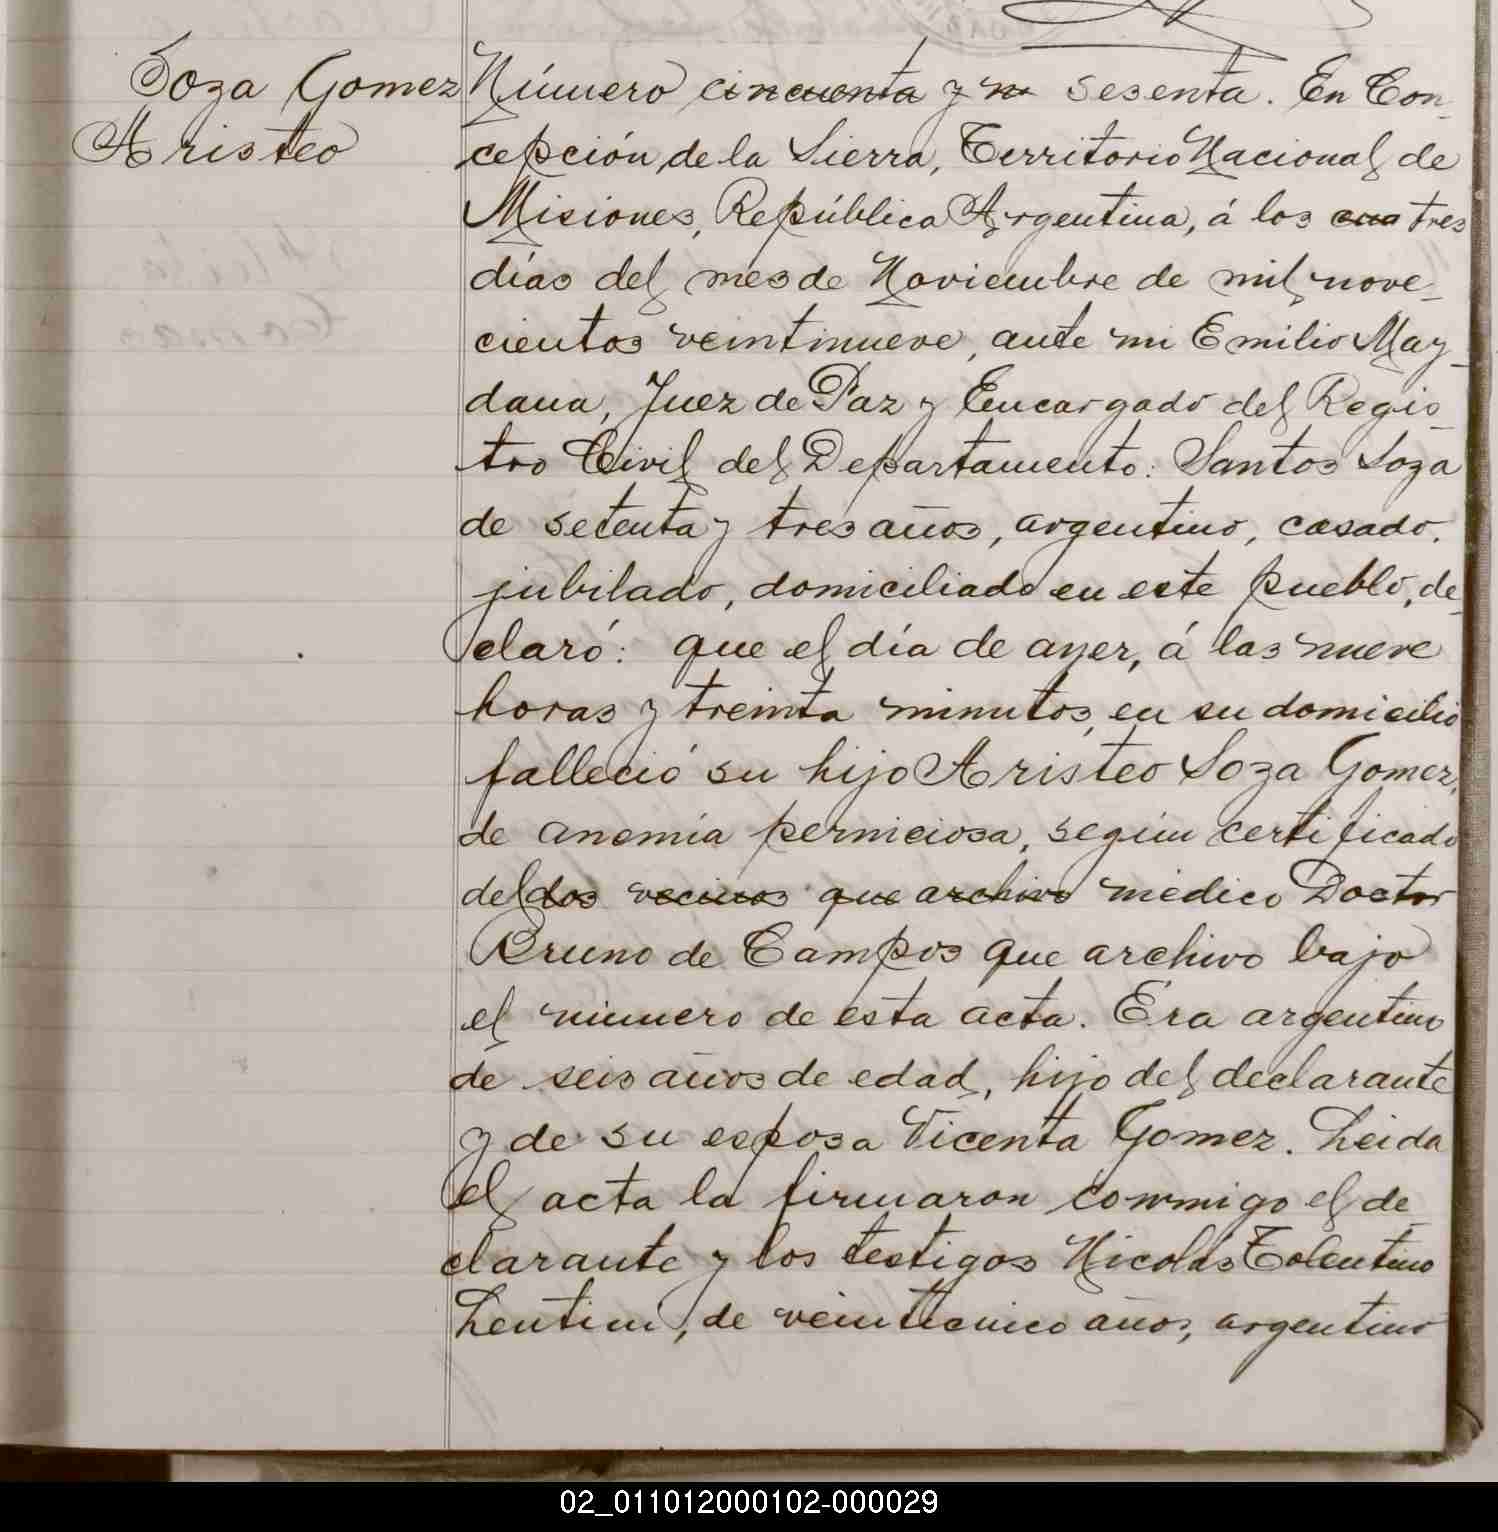 Soza Gomez
Aristeo
Número cincuenta y n sesenta. En Con-
cepción de la Sierra, Territorio Nacional de
Misiones, República Argentina, á los cua tres
días del mes de Noviembre de mil nove-
cientos veintinueve, ante mi Emilio May-
dana, Juez de Paz y Encargado del Regis-
tro Civil del Departamento: Santos Soza
de setenta y tres años, argentino, casado,
jubilado, domiciliado en este pueblo, de-
claró: que el día de ayer, á las nueve
horas y treinta minutos, en su domicilio
falleció su hijo Aristeo Soza Gomez,
de anemia perniciosa, según certificado
del dos vecinos que archivo médico Doctor
Bruno de Campos que archivo bajo
el número de esta acta. Era argentino
de seis años de edad, hijo del declarante
y de su esposa Vicenta Gomez. Leida
el acta la firmaron conmigo el de-
clarante y los testigos Nicolás Tolentino
Lentini, de veinticinco años, argentino
02_011012000102-000029